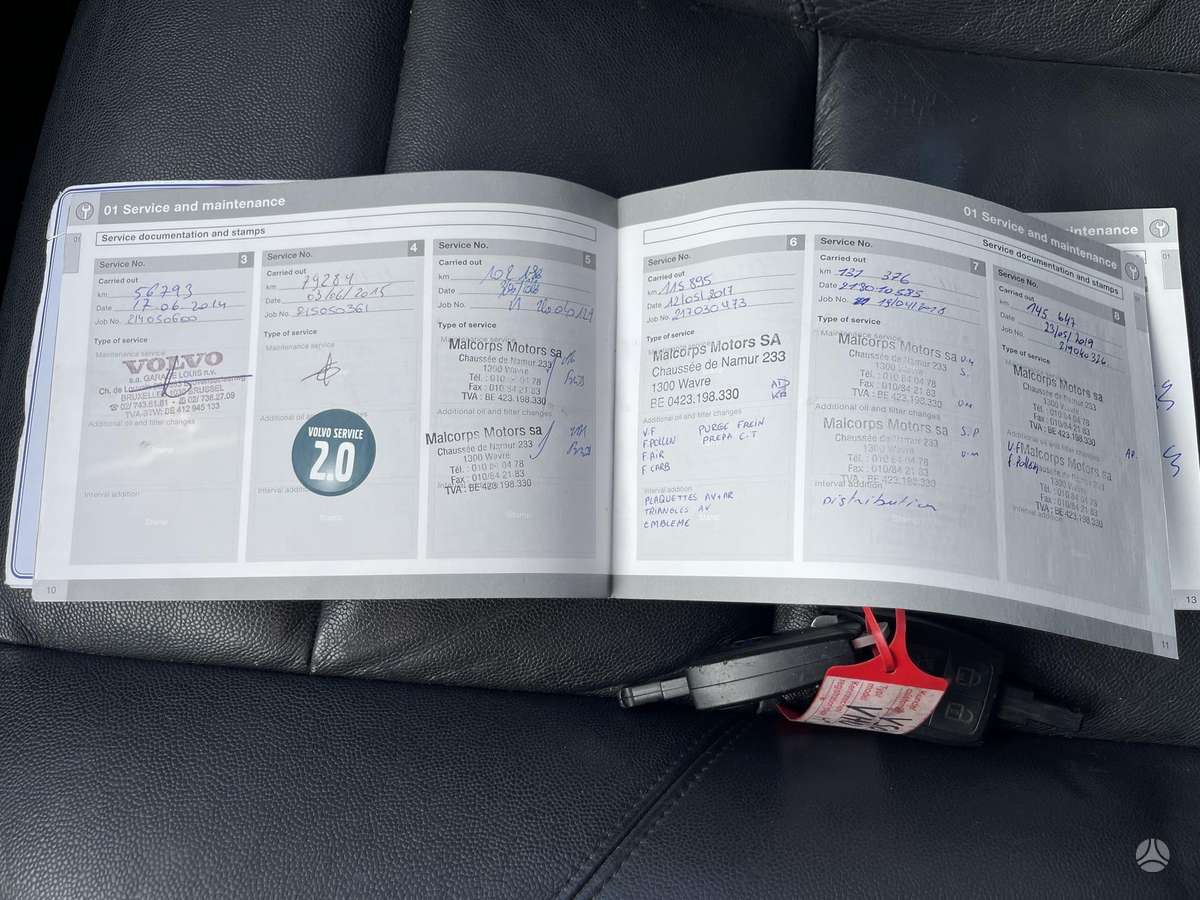 01 Service and maintenance
Service documentation and stamps
01
Service No. 3
Carried out
km 56793
Date 17.06.2014
Job No. 214050600
Type of service
Maintenance service
VOLVO
s.a. GARAGE LOUIS n.v.
Ch. de
BRUXELLES 1031 BRUSSEL
☎ 02/ 743.81.81 02/ 736.27.09
TVA-BTW: BE 412 945 133
Additional oil and filter changes
Stamp
Interval addition
Stamp
Service No. 4
Carried out
km 79284
Date 03/06/2015
Job No. 215050361
Type of service
Maintenance service
Additional oil and
changes
VOLVO SERVICE
2.0
Interval addition
Stamp
Service No. 5
Carried out
km
Date
Job No.
Type of service
Malcorps Motors sa
Chaussée de Namur 233
1300 Wavre
Tél. : 010 04 78
Fax : 010/84 21 83
TVA : BE 423.198.330
Additional oil and filter changes
Malcorps Motors sa
Chaussée de Namur 233
1300 Wavre
Tél. : 010 84 04 78
Fax : 010/84 21 83
TVA : BE 423.198.330
Stamp
10
01 Service and maintenance
Service documentation and stamps
Service No. 6
Carried out
km 115895
Date 12/05/2017
Job No. 217030473
Type of service
Malcorps Motors SA
Chaussée de Namur 233
1300 Wavre
BE 0423.198.330
Additional oil and filter changes
V.F PURGE FREIN
F.POLLEN PREPA C.T
F.AIR
F CARB
Interval addition
PLAQUETTES AV+AR
TRIANGLES AV
EMBLEME
Service No. 7
Carried out
km 131 326
Date
Job No.
Type of service
Malcorps Motors sa
Chaussée de Namur 233
1300 Wavre
Tél. : 010 84 04 78
Fax : 010/84 21 83
TVA : BE 423.198.330
Additional oil and filter changes
Malcorps Motors sa
Chaussée de Namur 233
1300 Wavre
Tél. : 010 84 04 78
Fax : 010/84 21 83
TVA : BE 423.198.330
Interval addition
Distribution
Service No. 8
Carried out
km 145 647
Date 23/05/2019
Job No. 219040326
Type of service
Malcorps Motors sa
Chaussée de Namur 233
1300 Wavre
Tél. : 010/84 04 78
Fax : 010/84 21 83
TVA : BE 423.198.330
Additional oil and filter changes
V.F
F.Pollen
Malcorps Motors sa
Chaussée de Namur 233
1300 Wavre
Tél. : 010/84 04 78
Fax : 010/84 21 83
TVA : BE 423.198.330
Interval addition
11
maintenance
01
13